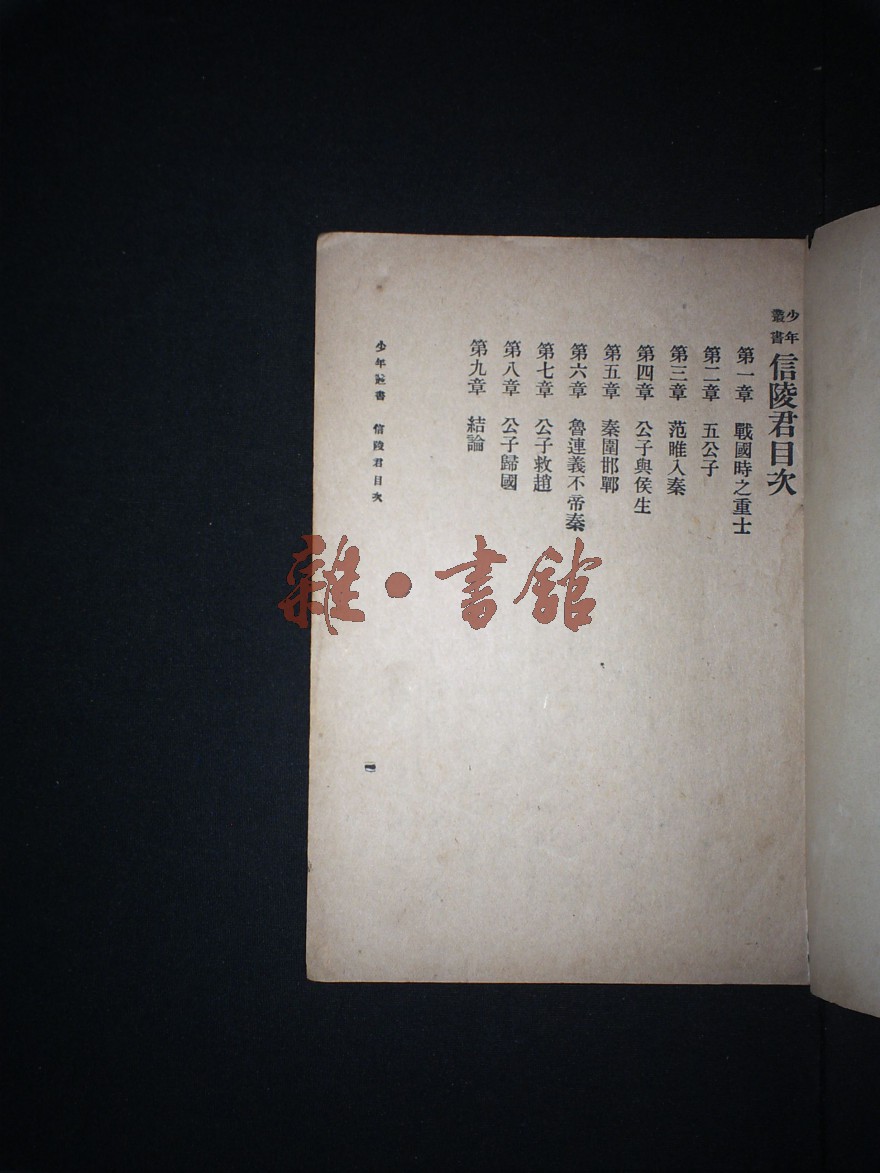 少年叢書 信陵君目次
第一章 戰國時之重士
第二章 五公子
第三章 范睢入秦
第四章 公子與侯生
第五章 秦圍邯鄲
第六章 魯連義不帝秦
第七章 公子救趙
第八章 公子歸國
第九章 結論
少年叢書 信陵君目次
一
雜·書館